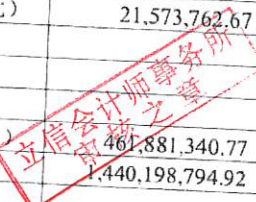 ）
21,573,762.67
立信会计师事务所
审核之章
）
461,881,340.77
1,440,198,794.92